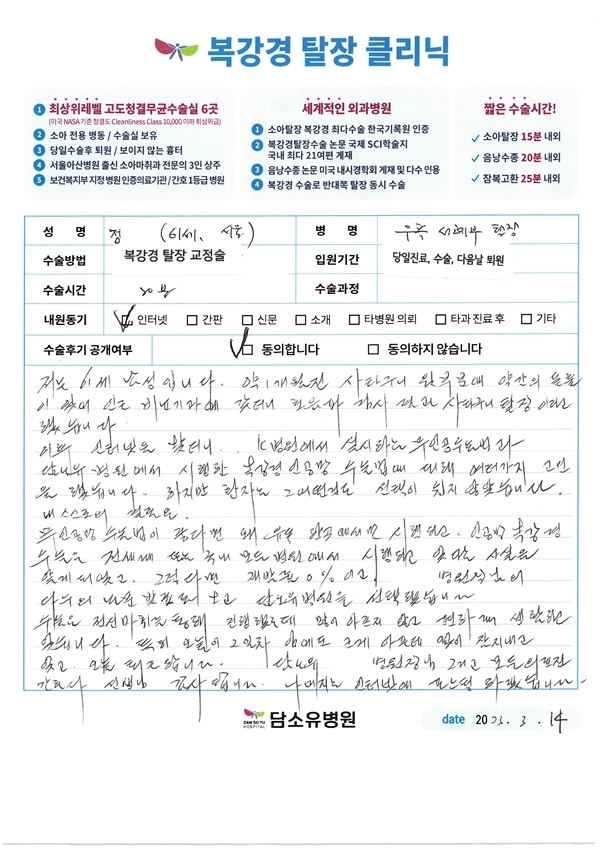 복강경 탈장 클리닉
1 최상위레벨 고도청결무균수술실 6곳
(미국 NASA 기준 청결도 Cleanliness Class 10,000 이하 최상위급)
2 소아 전용 병동 / 수술실 보유
3 당일수술후 퇴원 / 보이지 않는 흉터
4 서울아산병원 출신 소아마취과 전문의 3인 상주
5 보건복지부 지정 병원 인증의료기관 / 간호 1등급 병원
세계적인 외과병원
1 소아탈장 복강경 최다수술 한국기록원 인증
2 복강경탈장수술 논문 국제 SCI학술지
국내 최다 21여편 게재
3 음낭수종 논문 미국 내시경학회 게재 및 다수 인용
4 복강경 수술로 반대쪽 탈장 동시 수술
짧은 수술시간!
✓ 소아탈장 15분 내외
✓ 음낭수종 20분 내외
✓ 잠복고환 25분 내외
성 명 정 (61세, 서울) 병 명 우측 서혜부 탈장
수술방법 복강경 탈장 교정술 입원기간 당일진료, 수술, 다음날 퇴원
수술시간 20분 수술과정
내원동기 ☑ 인터넷 □ 간판 □ 신문 □ 소개 □ 타병원 의뢰 □ 타과 진료 후 □ 기타
수술후기 공개여부 ☑ 동의합니다 □ 동의하지 않습니다
저는 61세 남성입니다. 약 1개월전 사타구니 약간의 돌출
이 비뇨기과에 갔더니 검사 결과 사타구니 탈장이라고
했습니다.
이후 인터넷을 봤더니.. K병원에서 실시하는 무인공수술법과
담소유 병원에서 시행한 복강경 인공망 수술법에 대해 여러가지 고민
을 했습니다. 하지만 환자는 선택이 쉽지 않았습니다.
내 스스로 결론은.
무인공망 수술법이 좋다면 왜 유독 한국에서만 시행되고. 인공망 복강경
수술은 전세계 또는 국내 모든 병원에서 시행되고 있다는 사실을
알게 되었고. 그렇다면 재발률 0%이고, 병원장님의
보고 담소유병원을 선택했습니다
수술은 전신마취를 통해 진행됐는데 많이 아프지 않고 편하게
있습니다. 특히 오늘이 2일차 임에도 크게 아픈데 없이 잘지내고
있고. 오늘 퇴원합니다. 담소유 병원장님 그리고 모든 의료진
간호사 선생님 감사합니다. 나머지는 인터넷에
DAM SO YU HOSPITAL 담소유병원
date 2023. 3. 14